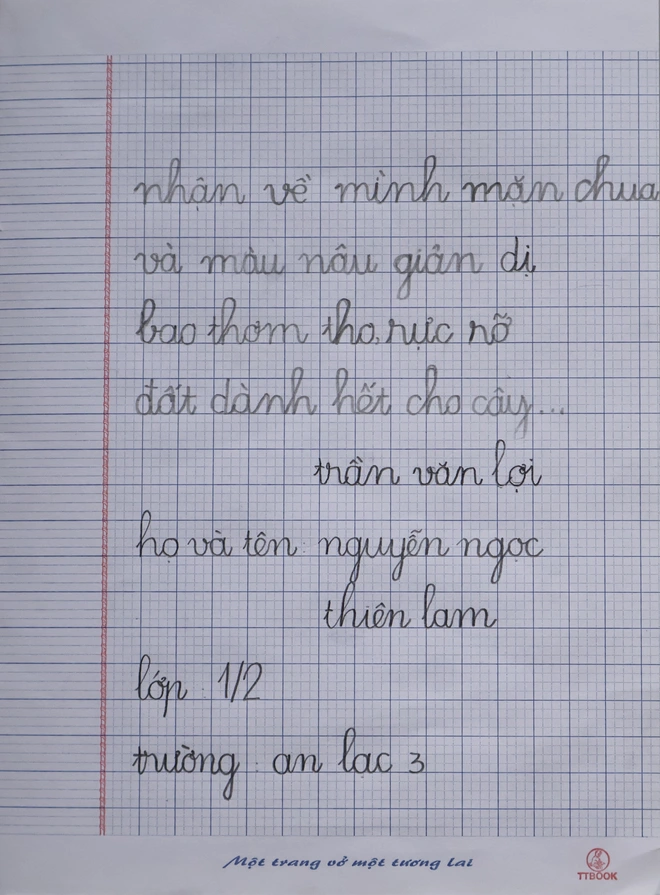 nhận về mình mặn chua
và màu nâu giản dị
bao thơm tho, rực rỡ
đất dành hết cho cây...
trần văn lợi
họ và tên: nguyễn ngọc
thiên lam
lớp 1/2
trường: an lạc 3
Một trang vở một tương lai
TTBOOK